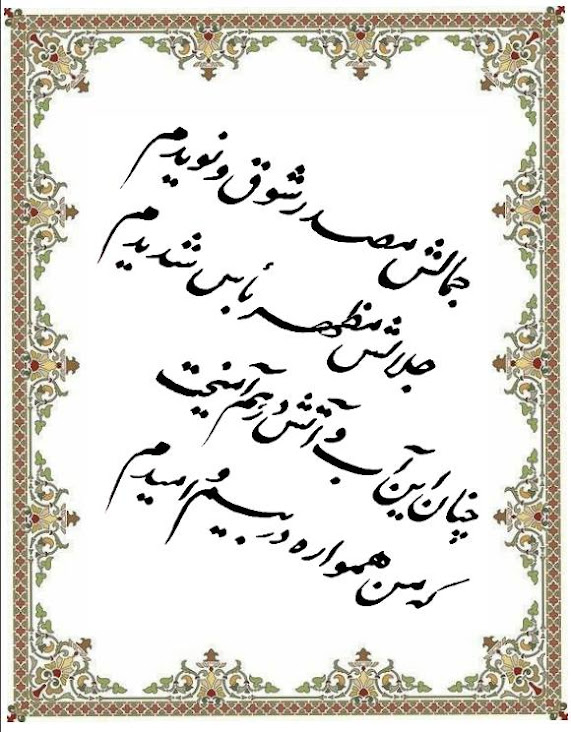 جمالش مصدر شوق و نویدم
جلالش مظهر بأس شدیدم
چنان این آب و آتش در هم آمیخت
که من همواره در بیم و امیدم